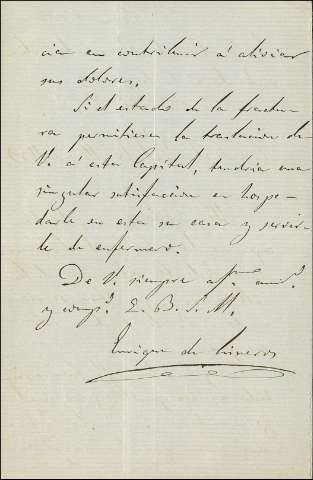 cia en contribuir á aliviar
sus dolores.
Si el estado de la fractu-
ra permitiese la traslacion de
V. á esta Capital, tendria una
singular satisfaccion en hospe-
darle en esta su casa y servir-
le de enfermero.
De V. siempre af.mo am.o
y comp.o Q. B. S. M.
Enrique de Cisneros